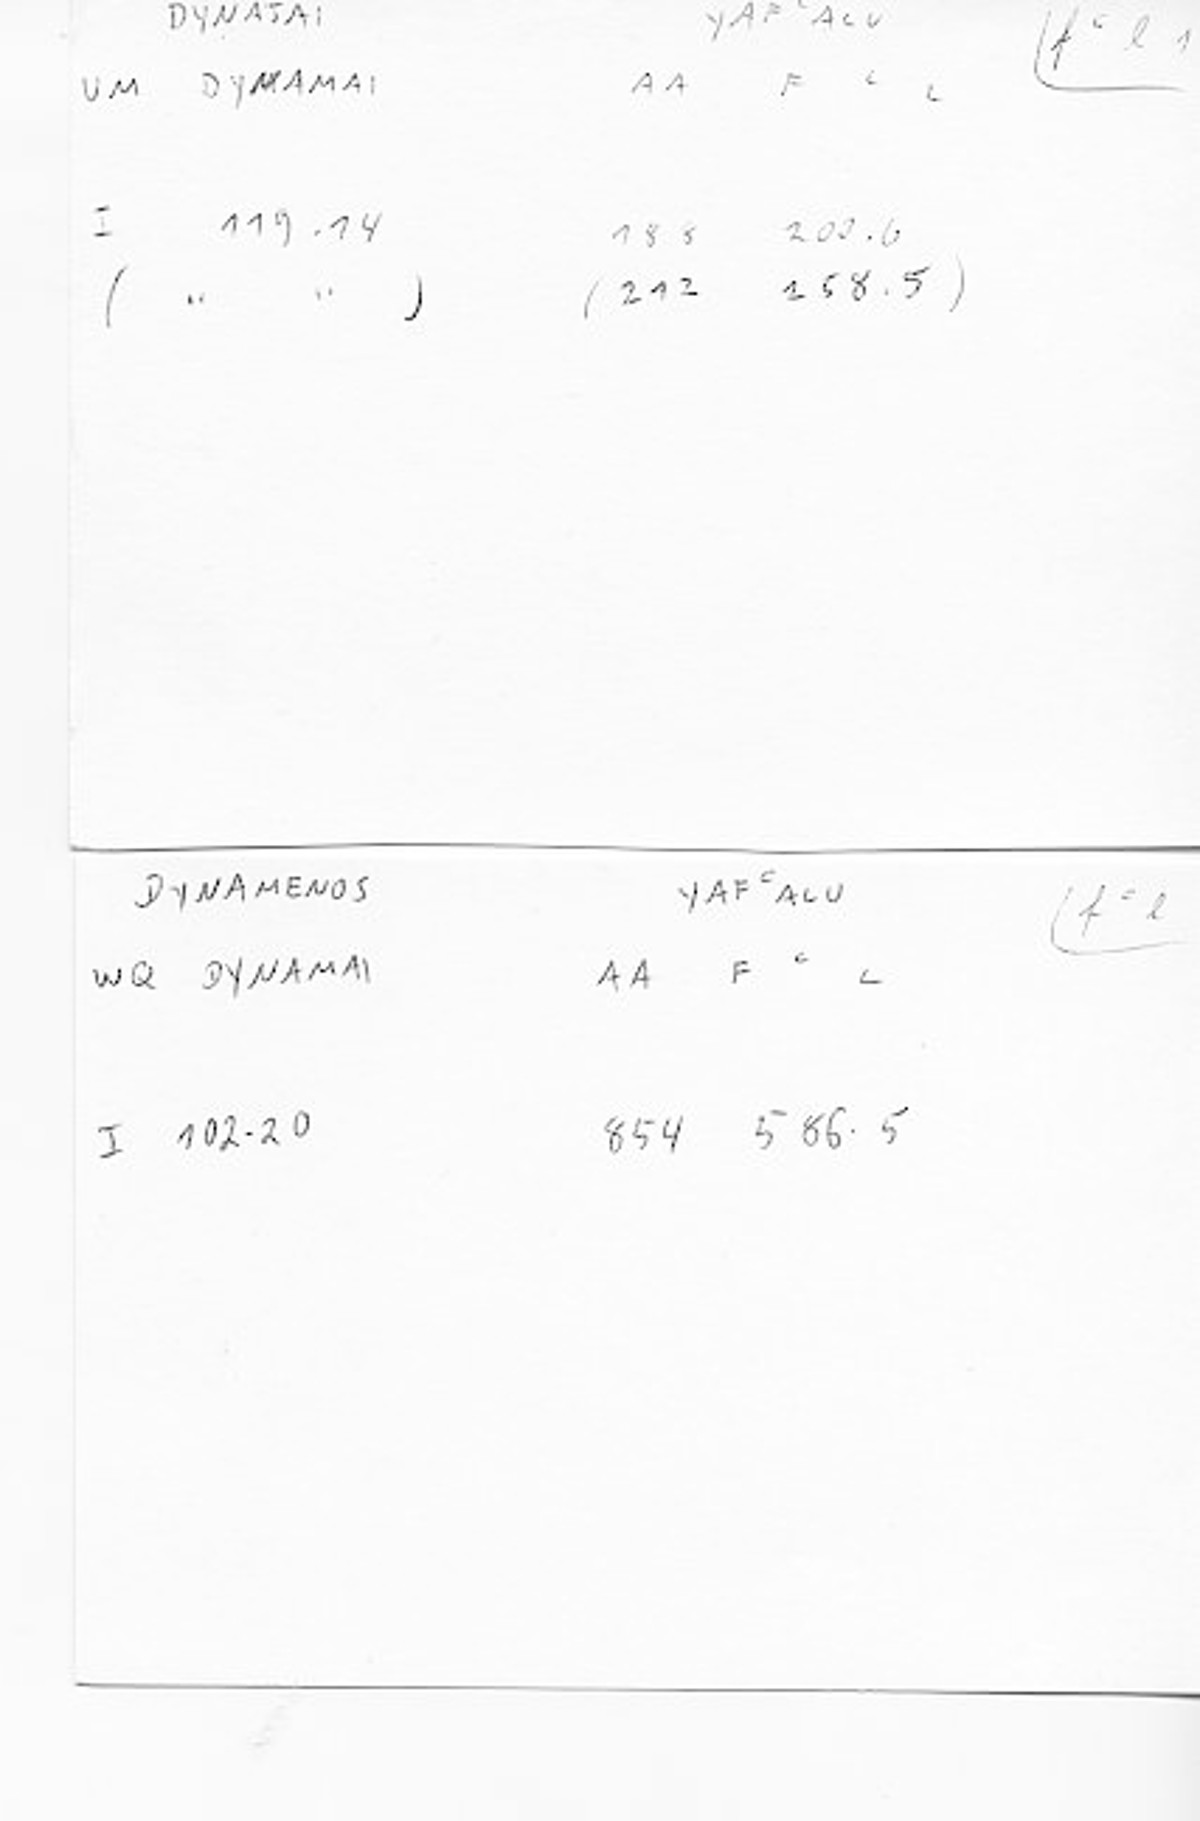 DYNATAI YAFᶜALU (fᶜl 1
UM DYNAMAI AA F ᶜ L
I 119.14 188 202.6
( " " ) (212 158.5)
DYNAMENOS YAFᶜALU (fᶜl
WQ DYNAMAI AA F ᶜ L
I 102.20 854 586.5